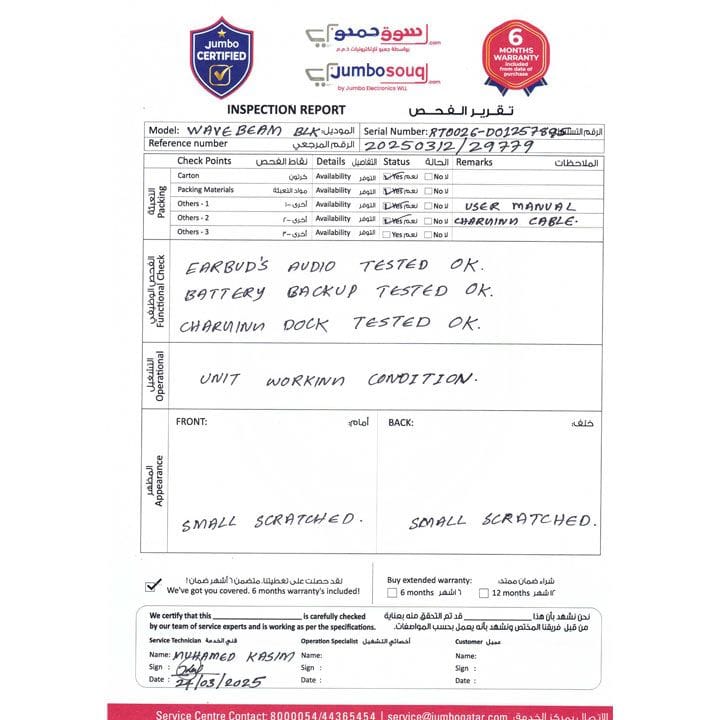 Jumbo
CERTIFIED
سوق جمبو.com
بواسطة جمبو للإلكترونيات ذ.م.م
Jumbosouq.com
by Jumbo Electronics WLL
6
MONTHS
WARRANTY
Included
from date of
purchase
INSPECTION REPORT تقرير الفحص
Model: WAVE BEAM BLK الموديل: Serial Number: الرقم التسلسلي
Reference number الرقم المرجعي 20250312/29779
Check Points نقاط الفحص Details التفاصيل Status الحالة Remarks الملاحظات
التعبئة
Packing
Carton كرتون Availability التوفر Yes نعم No لا
Packing Materials مواد التعبئة Availability التوفر Yes نعم No لا
Others - 1 أخرى -١ Availability التوفر Yes نعم No لا USER MANUAL
Others - 2 أخرى -٢ Availability التوفر Yes نعم No لا CHARGING CABLE.
Others - 3 أخرى -٣ Availability التوفر Yes نعم No لا
الفحص الوظيفي
Functional Check
EARBUD'S AUDIO TESTED OK.
BATTERY BACKUP TESTED OK.
CHARGING DOCK TESTED OK.
التشغيل
Operational
UNIT WORKING CONDITION.
المظهر
Appearance
FRONT: أمام: BACK: خلف:
SMALL SCRATCHED. SMALL SCRATCHED.
لقد حصلت على تغطيتنا. متضمن ٦ أشهر ضمان!
We've got you covered. 6 months warranty's included!
Buy extended warranty: شراء ضمان ممتد:
6 months ٦ أشهر 12 months ١٢ شهر
We certify that this ________ is carefully checked
by our team of service experts and is working as per the specifications.
نحن نشهد بأن هذا ________ قد تم التحقق منه بعناية
من قبل فريقنا المختص ونشهد بأنه يعمل بحسب المواصفات.
Service Technician فني الخدمة Operation Specialist أخصائي التشغيل Customer عميل
Name: MUHAMED KASIM Name: Name:
Sign : Sign : Sign :
Date : 24/03/2025 Date : Date :
Service Centre Contact: 8000054/44365454 | service@jumboqatar.com الاتصال بمركز الخدمة